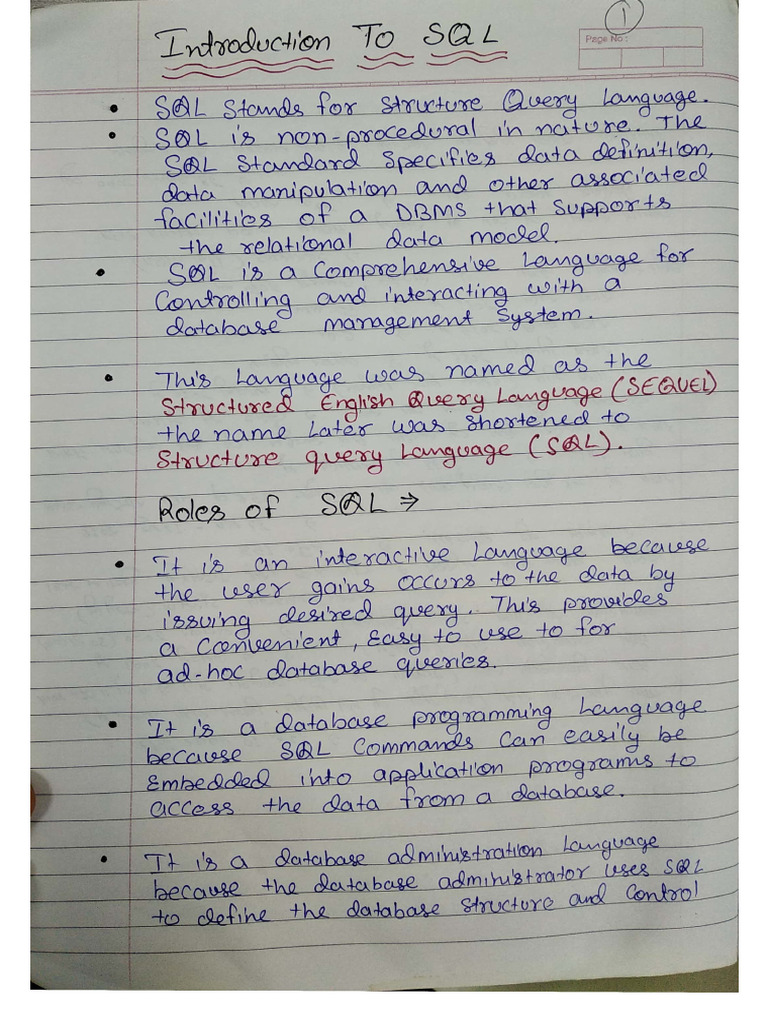 1
Page No:
Introduction To SQL
• SQL Stands for Structure Query Language.
• SQL is non-procedural in nature. The
SQL Standard Specifies data definition,
data manipulation and other associated
facilities of a DBMS that supports
the relational data model.
• SQL is a Comprehensive Language for
Controlling and interacting with a
database management System.
• This Language was named as the
Structured English Query Language (SEQUEL)
the name Later was shortened to
Structure query Language (SQL).
Roles of SQL ⇒
• It is an interactive Language because
the user gains occurs to the data by
issuing desired query. This provides
a Convenient, Easy to use to for
ad-hoc database queries.
• It is a database programming Language
because SQL Commands Can easily be
Embedded into application programs to
access the data from a database.
• It is a database administration Language
because the database administrator uses SQL
to define the database structure and Control